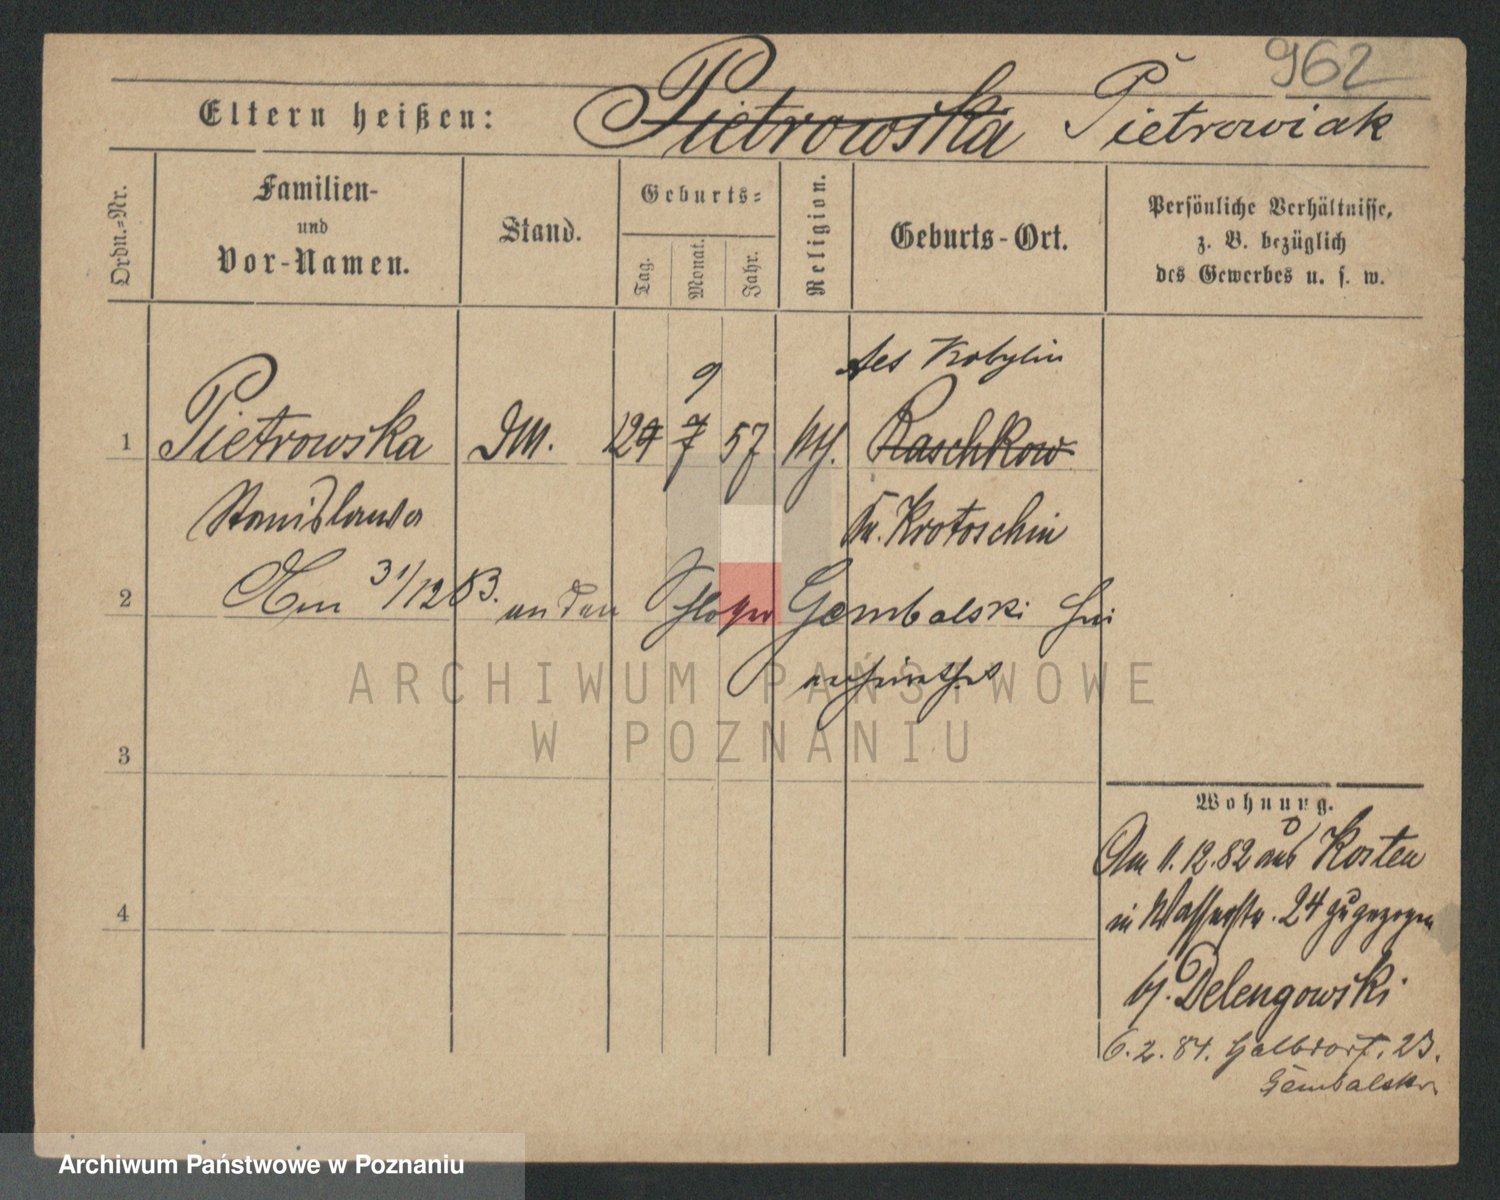 962
Eltern heißen: Pietrowska Pietrowiak
Ordn.-Nr.
Familien-
und
Vor-Namen.
Stand.
Geburts-
Tag.
Monat.
Jahr.
Religion.
Geburts-Ort.
Persönliche Verhältnisse,
z. B. bezüglich
des Gewerbes u. s. w.
Kobylin
9
1 Pietrowska DM. 12 7 57 Raschkow
Stanislawa Kr. Krotoschin
Am 31/12 83. an den
2 Gembalski hier
verheirathet
ARCHIWUM PAŃSTWOWE
W POZNANIU
3
4
Wohnung.
Am 1.12.82 aus Kosten
in Wasserstr. 24 zugezogen
b/. Delengowski
6.2.84. Halbdorf. 23.
Gembalski
Archiwum Państwowe w Poznaniu